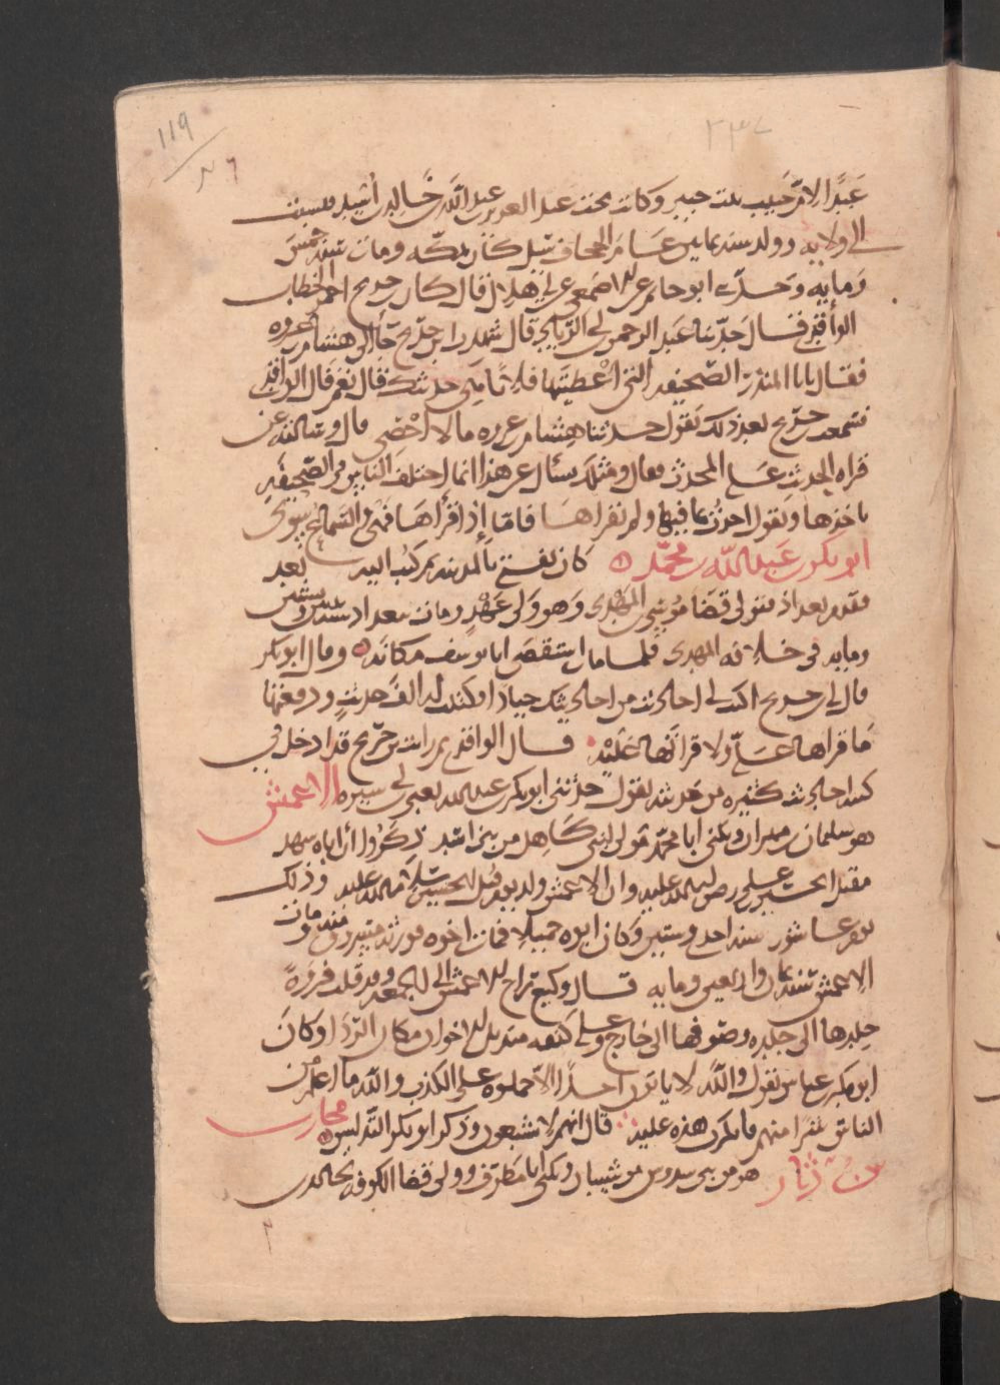 ١١٩
٢٣٧
عبدًا لام حبيب بنت جبير وكانت تحت عبد العزيز بن عبد الله بن خالد بن أسيد فنسب
الى ولايه وولد سنه ثمانين عام الجحاف سيل كان بمكه ومات سنه خمسين
ومايه وحدثنى ابو حاتم عن الاصمعى عن ابى هلال قال كان بن جريج احمر الخضاب
الواقدى قال حدثنا عبد الرحمن بن ابى الزناد قال شهدت ابن جريج جا الى هشام بن عروه
فقال يابا المنذر الصحيفه التى اعطيتها فلانا هى حديثك قال نعم قال الواقدى
فسمعت بن جريج بعد ذلك يقول حدثنا هشام بن عروه ما لا أحصى قال وسالته عن
قراه الحديث على المحدث فقال ومثلك يسأل عن هذا انما اختلف الناس فى الصحيفه
ياخذها ويقول احدث بما فيها ولم يقراها فاما إذا قرأها فهى والسماع سوى
ابو بكر بن عبد الله بن محمد كان يفتى بالمدينه ثم كتب اليه بعد
فقدم بغداد فتولى قضا موسى بن المهدى وهو ولى عهد ومات ببغداد سنه اثنتين وستين
ومايه فى خلافه المهدى فلما مات استقضى ابا يوسف مكانه وقال ابو بكر
قال لى بن جريج اكتب لى احاديث من احاديثك جيادا فكتبت له الف حديث ودفعتها
ما قراها على ولا قراتها عليه قال الواقدى ثم رايت بن جريج قد ادخل فى
كتبه احاديث كثيره من حديثه يقول حدثنى ابو بكر بن عبد الله يعنى بن ابى سبره الاعمش
هو سليمان بن مهران ويكنى ابا محمد مولى لبنى كاهل من بنى اسد ذكروا أن اباه شهد
مقتل الحسين بن على رضى الله عليه وان الاعمش ولد يوم قتل الحسين سلام الله عليه وذلك
يوم عاشور سنه احدى وستين وكان ابوه حميلا فمات اخوه فورثه مسروق منه ومات
الاعمش سنه ثمان واربعين ومايه قال وكيع راح الاعمش الى الجمعه وقد قلب فروةً
جلدها الى جلده وصوفها الى خارج وعلى كتفه منديل الخوان مكان الردا وكان
ابو بكر بن عياش يقول والله لا ياتون احداً إلا حملوه على الكذب والله ما اعلم من
الناس شرا منهم فابكرت هذه عليه قال انهم لا يشبعون وذكر ابو بكر التدليس محارب
بن دثار هو من بنى سدوس بن شيبان ويكنى ابا مطرف وولى قضا الكوفه لخالد بن